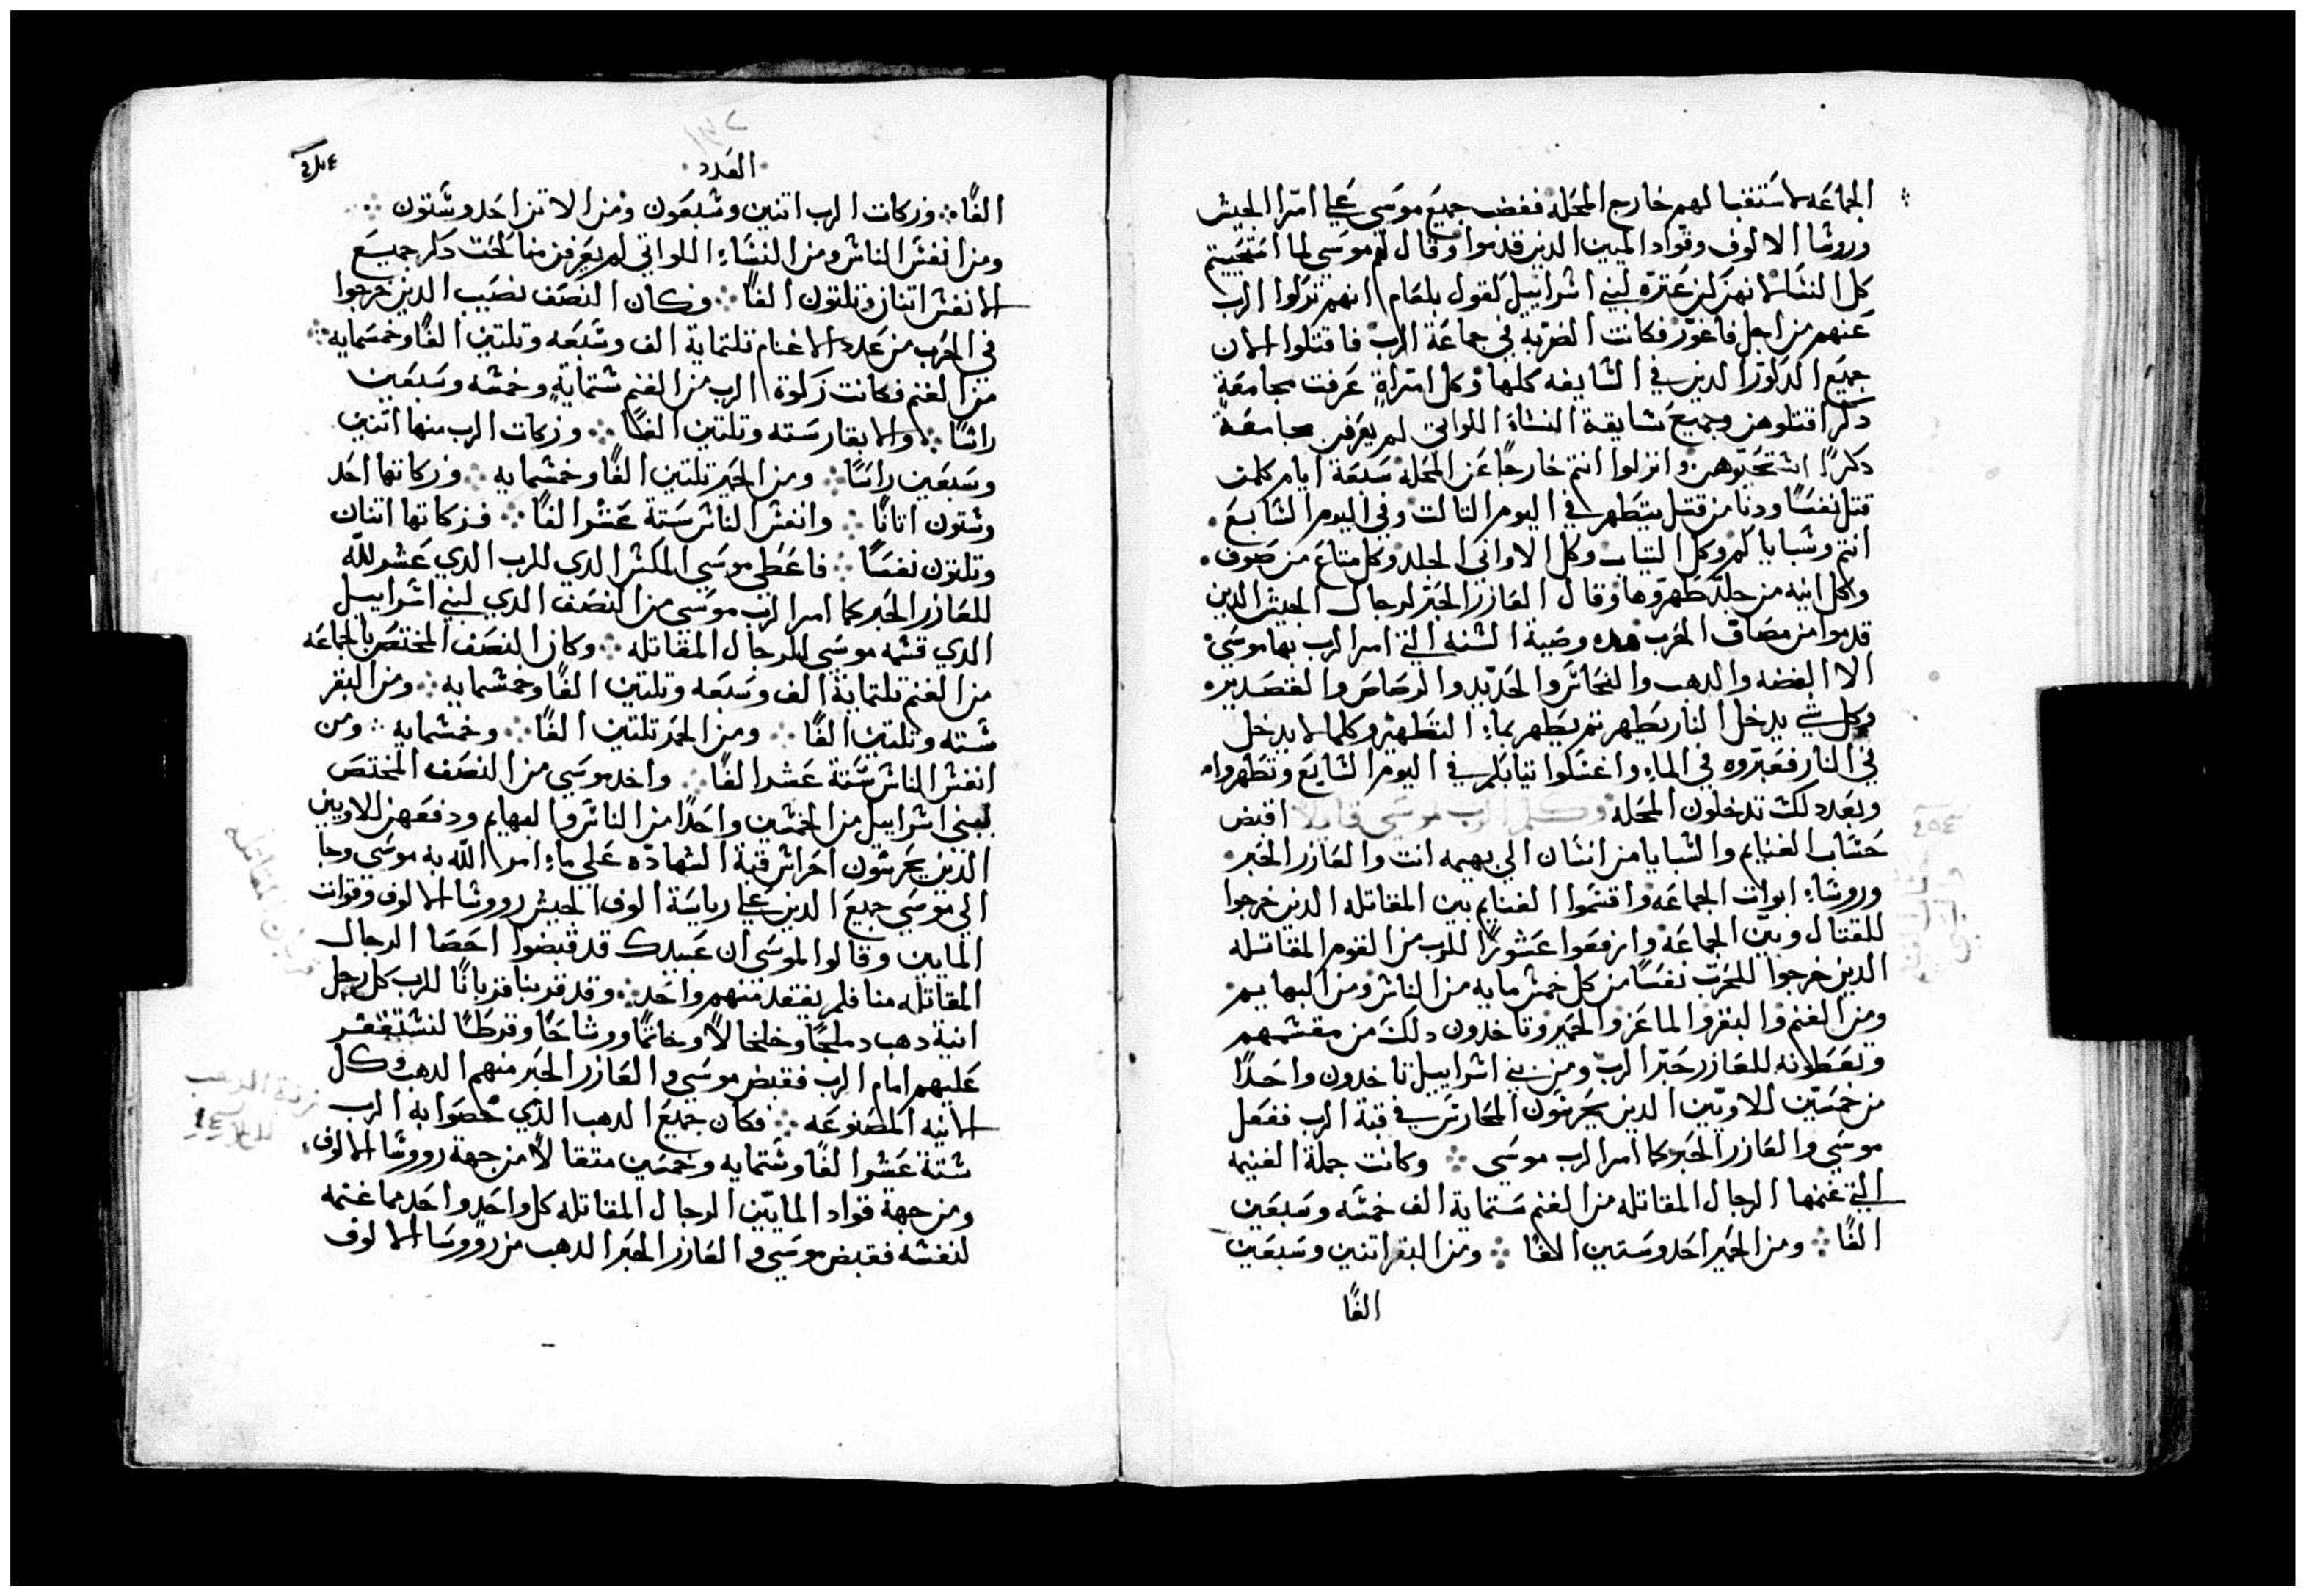 الجماعه لاستقبالهم خارج المحله فغضب جميع موسي علي امرا الجيش
وروشا الالوف وقواد الميين الدين قدموا وقال لهم موسي لما استحييتم
كل النشا لانهن كن عتره لبني اشراييل كقول بلعام انهم نزلوا الرب
عنهم من اجل فاغور فكانت الضربه في جماعة الرب فاقتلوا الان
جميع الدكور الدين في الشايفه كلها وكل امراة عرفت مجامعة
دكر اقتلوهن وجميع شايقة النشاء اللواتي لم يعرفن مجامعة
دكرًا اشتحيوهن وانزلوا انتم خارجًا عن المحله سبعة ايام كلمن
قتل نفسًا ودنا من قتيل يتطهر في اليوم التالت وفي اليوم الشابع
انتم وشباياكم وكل التياب وكل الاواني الجلد وكل متاع من صوف
وكل انيه من جلد طهروها وقال العازر الحبر لرجال الجيش الدين
قدموا من مصاف الحرب هده وصية الشنه التي امر الرب بها موسي
الا الفضه والدهب والنحاش والحديد والرصاص والقصدير
وكل شي يدخل النار يطهر تم يطهر بماء التطهير وكلما لا يدخل
في النار فعبروه في الماء واغشلوا تيابكم في اليوم الشابع وتطهروا
وبعد دلك تدخلون المحله وكلم الرب موسي قايلا اقبض
حشاب الغنايم والشبايا من انشان الي بهيمه انت والعازر الحبر
وروشاء ابوات الجماعه واقتشموا الغنايم بين المقاتله الدين خرجوا
للقتال وبين الجماعه وارفعوا عشورًا للرب من القوم المقاتله
الدين خرجوا للحرب نفسًا من كل خمش مايه من الناش ومن البهايم
ومن الغنم والبقر والماعز والحمير وتاخدون دلك من مقشمهم
وتعطونه للعازر حبر الرب ومن بني اشراييل تاخدون واحدًا
من خمشين للاويين الدين يحرشون المحارش في قبة الرب ففعل
موسي والعازر الحبر كما امر الرب موسي ⁘ وكانت جملة الغنيمه
التي غنمها الرجال المقاتله من الغنم ستماية الف خمشه وسبعين
الفًا ⁘ ومن الحمير احد وستين الافًا ⁘ ومن البقر اتنين وسبعين
الفًا
العدد
الفًا ⁘ وزكات الرب اتنين وشبعون ومن الاتن احد وشتون ⁘
ومن انفش الناش ومن النشاء اللواتي لم يعرفن مناكحت دكر جميع
الانفش اتنان وتلتون الفًا ⁘ وكان النصف نصيب الدين خرجوا
في الحرب من عدد الاغنام تلتماية الف وشبعه وتلتين الفًا وخمسمايه ⁘
من الغنم فكانت زكوة الرب من الغنم شتماية وخمشه وسبعين
راشًا ⁘ والابقار سته وتلتين الفًا ⁘ وزكات الرب منها اتنين
وسبعين راسًا ⁘ ومن الحمير تلتين الفًا وخمشمايه ⁘ وزكاتها احد
وشتون اتانًا ⁘ وانفش الناش ستة عشر الفًا ⁘ فزكاتها اتنان
وتلتون نفسًا ⁘ فاعطي موسي المكش الدي للرب الدي عشر لله
للعازر الحبر كما امر الرب موسي من النصف الدي لبني اشراييل
الدي قشمه موسي للرجال المقاتله ⁘ وكان النصف المختص بالجماعه
من الغنم تلتماية الف وسبعه وتلتين الفًا وخمشمايه ⁘ ومن البقر
شته وتلتين الفًا ⁘ ومن الحمر تلتين الفًا ⁘ وخمشمايه ⁘ ومن
انفش الناش ستة عشر الفًا ⁘ واخد موسي من النصف المختص
لبني اشراييل من الخمشين واحدًا من الناش والبهايم ودفعهن للاويين
الدين يحرشون احراش قبة الشهاده علي ما امر الله به موسي وجا
الي موسي جميع الدين علي رياسة الوف الجيش رووشا الالوف وقوات
المايين وقالوا لموسي ان عبيدك قد قبضوا احصا الرجال
المقاتله منا فلم يفتقد منهم واحد ⁘ وقد قربنا قربانًا للرب كل رجل
انية دهب دملجًا وخلخالًا وخاتمًا ووشاحًا وقرطًا لنشتغفر
عليهم امام الرب فقبض موسي والعازر الحبر منهم الدهب وكل
الانيه المصنوعه ⁘ فكان جميع الدهب الدي خصوا به الرب
شتة عشر الفًا وشتمايه وخمسين متقالًا من جهة رووشا الالوف
ومن جهة قواد المايين الرجال المقاتله كل واحد واحد مما غنمه
لنفشه فقبض موسي والعازر الحبر الدهب من رووسا الالوف
قربان المقاتله